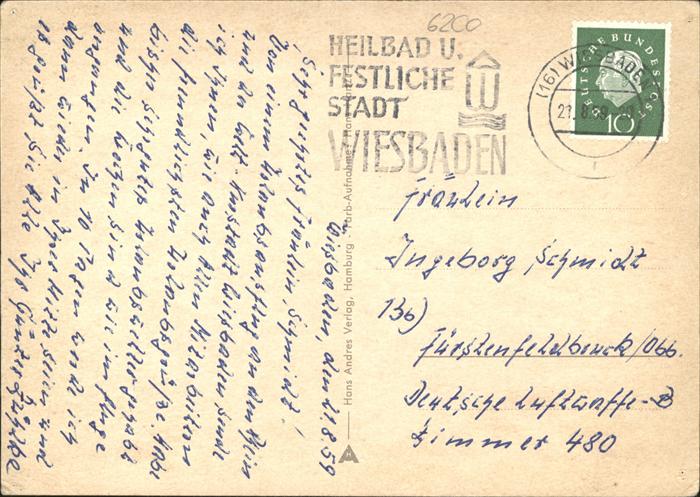 6200
HEILBAD U.
FESTLICHE
STADT
WIESBADEN
(16) WIESBADEN
21.8.59
DEUTSCHE BUNDESPOST
10
Fräulein
Ingeborg Schmidt
13b)
Fürstenfeldbruck/Obb.
Deutsche Luftwaffe-B
Zimmer 480
Hans Andres Verlag, Hamburg Farb-Aufnahme:
Wiesbaden, den 21.8.59
Sehr geehrtes Fräulein Schmidt!
Von einem Urlaubsausflug an den Rhein
und der Welt-Kurstadt Wiesbaden sende
ich Ihnen, wie auch allen Mitarbeitern
die freundlichsten Urlaubsgrüße. Habe
bisher sehr gutes Urlaubswetter gehabt
und die Wochen sind wie im Fluge
vergangen. In 10 Tagen werde ich
dann wieder in Ihrer Mitte sein und
es grüßt Sie alle Ihr Günter